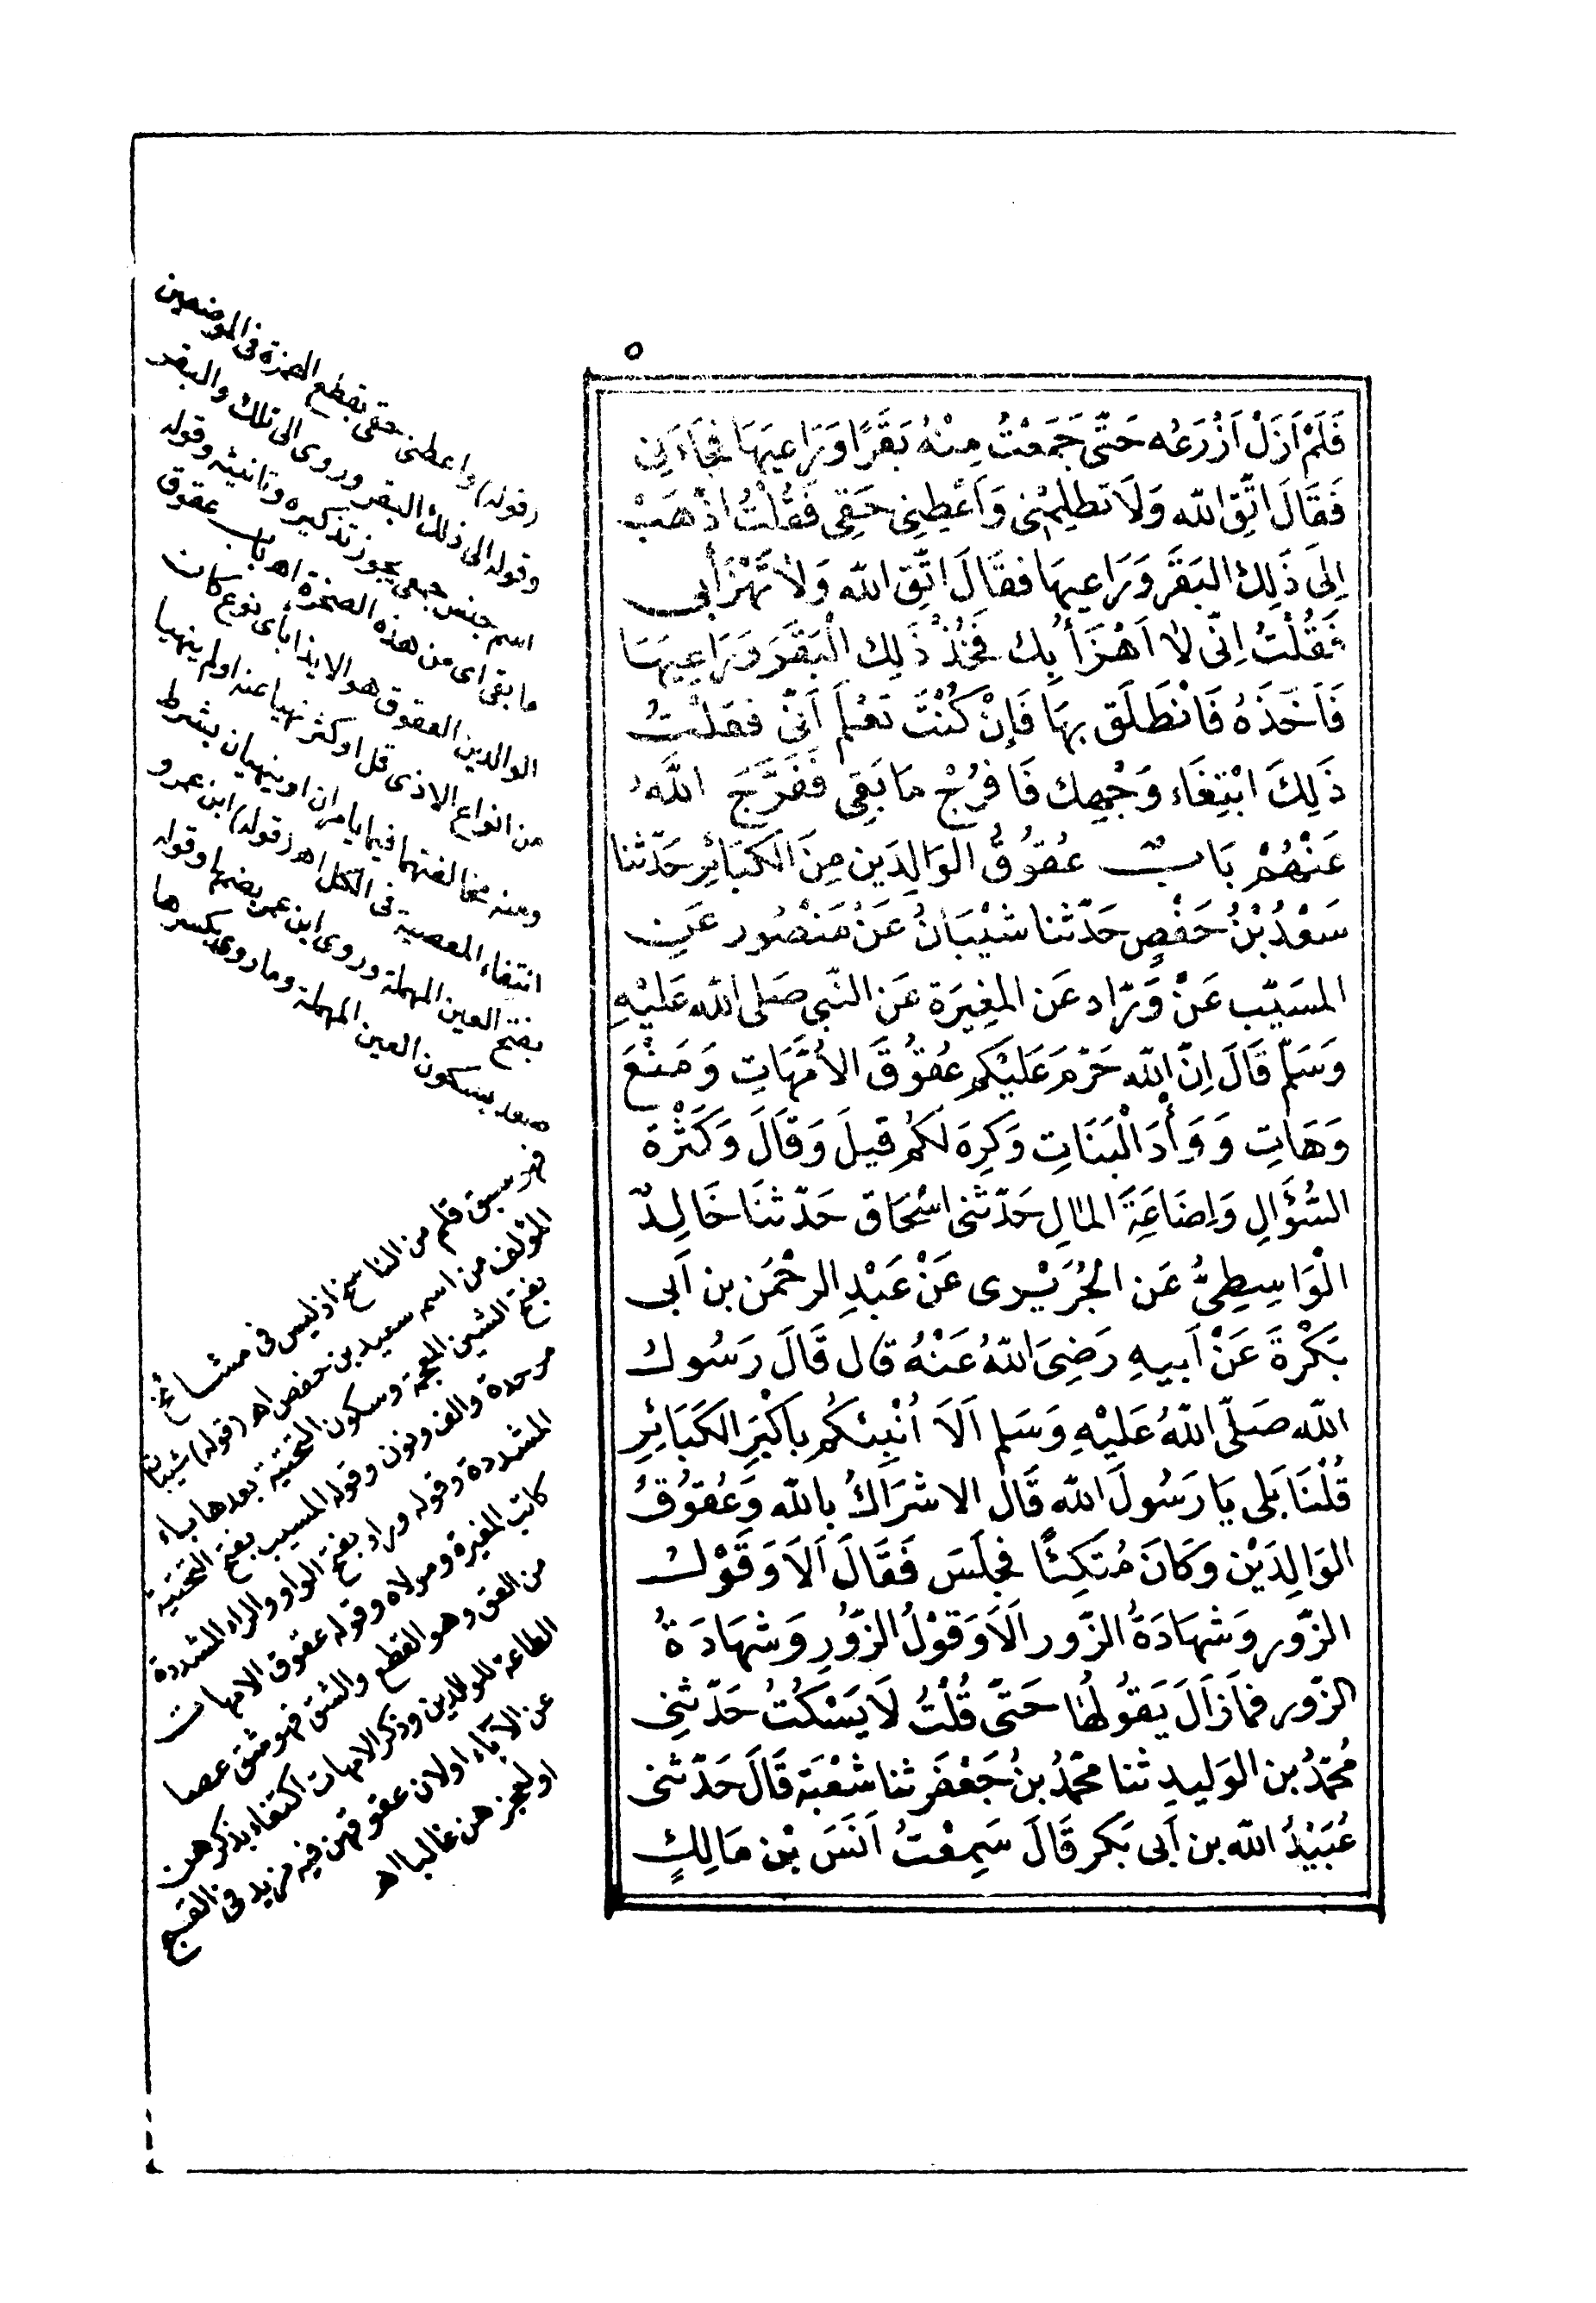 ٥
فَلَمْ اَزَلْ اَزْرَعُه حَتّٰى جَمَعْتُ مِنْهُ بَقَرًا وَرَاعِيَهَا فجَاءَنِى
فَقَالَ اتَّقِ اللّٰه وَلَا تَظلِمْنِى وَاَعْطِنِى حَقِى فَقُلْتُ اذْهَبْ
اِلىَ ذَلِكَ البَقَرِ وَرَاعِيهَا فقَالَ اتَّقِ اللّٰه وَلَا تَهْزَأ بِى
فَقُلْتُ اِنِّى لَا اَهْزَأ بِكَ فَخُذْ ذَلِكَ الْبَقَرَ وَرَاعِيَهَا
فَاَخَذَهُ فَانْطَلَقَ بِهَا فَإِنْ كُنْتَ تَعْلَم اَنِّى فعَلْتُ
ذَلِكَ ابْتِغَاء وَجْهِكَ فَافْرُجْ مَا بَقِىَ فَفَرَّجَ اللّٰهُ
عَنْهُمْ بَابٌ عُقوُقُ الوَالِدَين مِنَ الكَبَائِر حَدّثنا
سَعْدُ بْنُ حَفْصٍ حَدّثنا شَيْبَانُ عَنْ مَنْصُور عَنِ
المسَيّب عَنْ وَرّاد عَن المغِيرَة عَن النّبى صَلى اللّٰه عَليْهِ
وَسَلّم قَالَ اِنّ اللّٰه حَرّمَ عَلَيْكم عُقوُقَ الاُمّهَاتِ وَمَنْعَ
وَهَاتِ وَوَأْدَ الْبَنَاتِ وَكرِهَ لَكُم قِيلَ وَقَالَ وَكَثْرَةَ
السُّؤَالِ وَاِضَاعَةَ المَالِ حَدّثنى اسْحَاق حَدّثنَا خَالِدٌ
الْوَاسِطِىُّ عَن الجُرَيْرِى عَنْ عَبْدِ الرحْمَن بن اَبى
بَكْرَةَ عَنْ اَبِيهِ رَضِىَ اللّٰهُ عَنْهُ قال قَالَ رَسُولُ
اللّٰه صَلّى اللّٰهُ عَلَيْهِ وَسَلم اَلَا اُنْبِئُكُم بِاَكْبَرِ الكَبَائِرِ
قُلْنَا بَلى يَا رَسُولَ اللّٰه قَال الاشرَاكُ باللّٰه وَعُقوُقُ
الوَالِدَيْن وَكَانَ مُتكِئًا فجلَسَ فَقَالَ اَلَا وَقَوْلُ
الزّور وَشهَادَةُ الزّور اَلَا وَقوْلُ الزّوُرِ وَشهَادَةُ
الزّور فمَا زَالَ يَقوُلهَا حَتّى قُلْتُ لَا يَسْكُتُ حَدّثنِى
مُحمّدُ بن الوَليد ثنا محَمّدُ بنُ جَعْفَر ثنا شعْبَة قَالَ حَدّثنى
عُبَيْدُ اللّٰه بن اَبى بَكر قَالَ سَمِعْتُ اَنَسَ بْنَ مَالِكٍ
(قوله) واعطنى حقى بقطع الهمزة فى الموضعين
وقوله الى ذلك البقر وروى الى تلك والبقر
اسم جنس جمعى يجوز تذكيره وتانيثه وقوله
ما بقى اى من هذه الصخرة اهـ باب عقوق
الوالدين العقوق هو الايذا بأى نوع كان
من انواع الاذى قل او كثر نهيا عنه او لم ينهيا
ومنه مخالفتهما فيما يامران او ينهيان بشرط
انتفاء المعصية فى الكل اهـ (قوله) ابن عمرو
بفتح العين المهملة وروى ابن عمر بضمها وقوله
سعد بسكون العين المهملة وما روى بكسرها
فهو سبق قلم من الناسخ اذ ليس فى مشايخ
المؤلف من اسمه سعيد بن حفص اهـ (قوله) شيبان
بفتح الشين المعجمة وسكون التحتية بعدها باء
موحدة والف ونون وقوله المسيب بفتح التحتية
المشددة وقوله وراد بفتح الواو والراء المشددة
كاتب المغيرة ومولاه وقوله عقوق الامهات
من العق وهو القطع والشق فهو شق عصا
الطاعة للوالدين وذكر الامهات اكتفاء بذكرهن
عن الآباء او لان عقوقهن فيه مزيد فى القبح
او لعجزهن غالبا اهـ